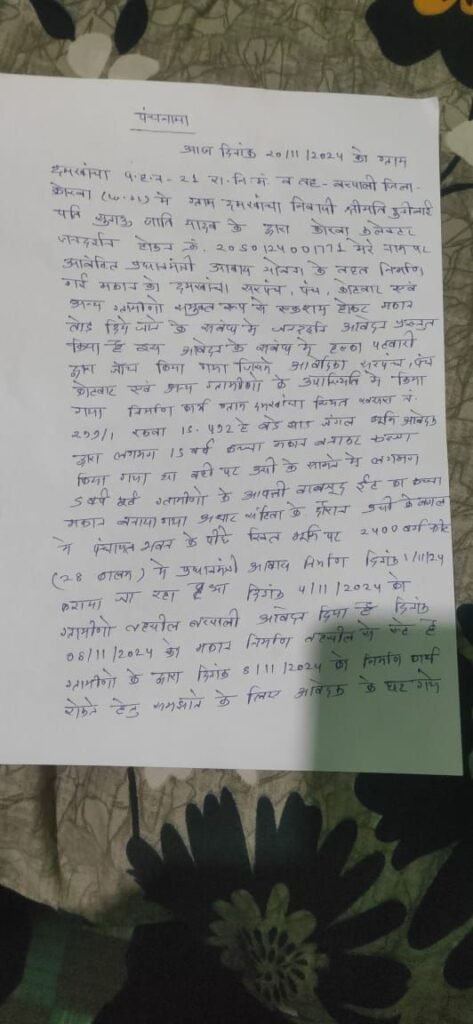 पंचनामा
आज दिनांक 20/11/2024 को ग्राम
दमखांचा प.ह.न - 21 रा.नि.मं. व तह- बरपाली जिला-
कोरबा (छ.ग.) में ग्राम दमखांचा निवासी श्रीमति
पति जाति यादव के द्वारा कोरबा कलेक्टर
जनदर्शन टोकन क्रं. 2050124001771 मेरे नाम पर
आबंटित प्रधानमंत्री आवास योजना के तहत निर्माण
गई मकान को दमखांचा सरपंच, पंच, कोटवार एवं
अन्य ग्रामीणो संयुक्त रूप से एकराय होकर मकान
तोड़ दिये जाने के संबंध में जनदर्शन आवेदन प्रस्तुत
किया है इस आवेदन के संबंध में हल्का पटवारी
द्वारा जांच किया गया जिसमें आवेदिका सरपंच, पंच
कोटवार एवं अन्य ग्रामीणो के उपस्थिति में किया
गया निर्माण कार्य ग्राम दमखांचा स्थित खसरा नं.
299/1 रकबा 15.492 हे बडे झाड जंगल भूमि आवेदक
द्वारा लगभग 15 वर्ष कच्चा मकान बनाकर कब्जा
किया गया था वही पर उसी के सामने में लगभग
5 वर्ष पूर्व ग्रामीणो के आपत्ती बावजूद ईट का कच्चा
मकान बनाया गया आचार संहिता के दौरान उसी के बगल
में पंचायत भवन के पीछे स्थित भूमि पर 2400 वर्ग फीट
(28 कालम) में प्रधानमंत्री आवास निर्माण दिनांक 1/11/24
कराया जा रहा हुआ दिनांक 4/11/2024 को
ग्रामीणो तहसील बरपाली आवेदन दिया है दिनांक
08/11/2024 को मकान निर्माण तहसील से स्टे है
ग्रामीणो के द्वारा दिनांक 8/11/2024 को निर्माण कार्य
रोकने हेतु समझाने के लिए आवेदक के घर गये